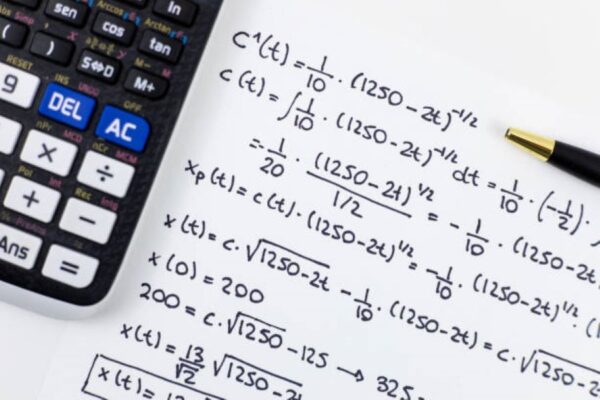 sen
ln
Abs
Arccos
Arctan
cos
tan
(
)
S⇔D
M+
M-
RESET
INS
UNDO
OFF
9
DEL
AC
nPr
MCD
nCr
MCM
×
÷
Pol
Int
Rec
Intg
+
−
Ans
=
C¹(t) = 1/10 · (1250 - 2t)^-1/2
c(t) = ∫ 1/10 · (1250 - 2t)^-1/2 dt = 1/10 · (-1/2) ·
= -1/20 · (1250 - 2t)^1/2 / 1/2 = -1/10 · (1250 - 2t
xp(t) = c(t) · (1250 - 2t)^1/2 = -1/10 · (1250 - 2t)^1/2 · (1
x(t) = c · √1250 - 2t - 1/10 · (1250 - 2t) = c · √1250 - 2t
x(0) = 200
200 = c · √1250 - 125 → 325
x(t) = 13/√2 √1250 - 2t
x(t) =